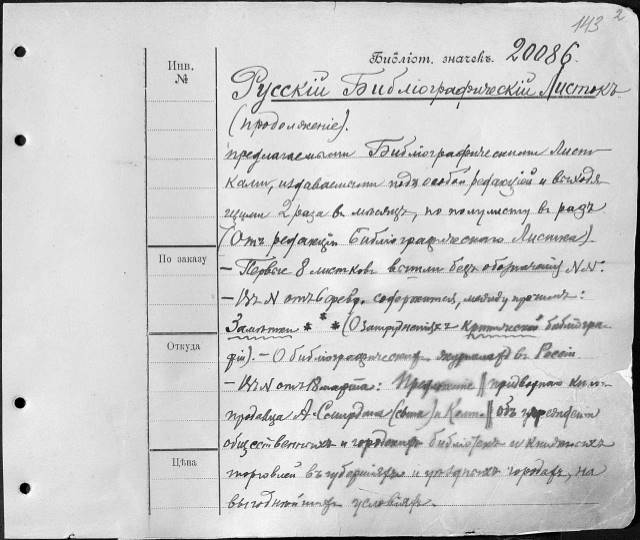 143 2
Библіот. значекъ. 20086.
Инв. №
Русскій Библіографическій Листокъ
(продолженіе).
предлагаемыми Библіографическими Лист-
ками, издаваемыми подъ особой редакціей и выходя-
щими 2 раза въ мѣсяцъ, по полулисту въ разъ
(Отъ редакціи Библіографическаго Листка).
По заказу
– Первые 8 листковъ вышли безъ обозначенія №№.
– Въ № отъ 6 февр. содержится, между прочимъ:
Замѣтки * * * (О затрудненіяхъ критической библіогра-
Откуда
фіи). – О библіографическихъ журналахъ въ Россіи
– Въ № отъ 18 марта: придворнаго кни-
продавца А. Смирдина (сына) и Комп. || объ учрежденіи
общественныхъ и городскихъ библіотекъ и книжныхъ
Цѣна
торговлей въ губернскихъ и уѣздныхъ городахъ, на
выгоднѣйшихъ условіяхъ.